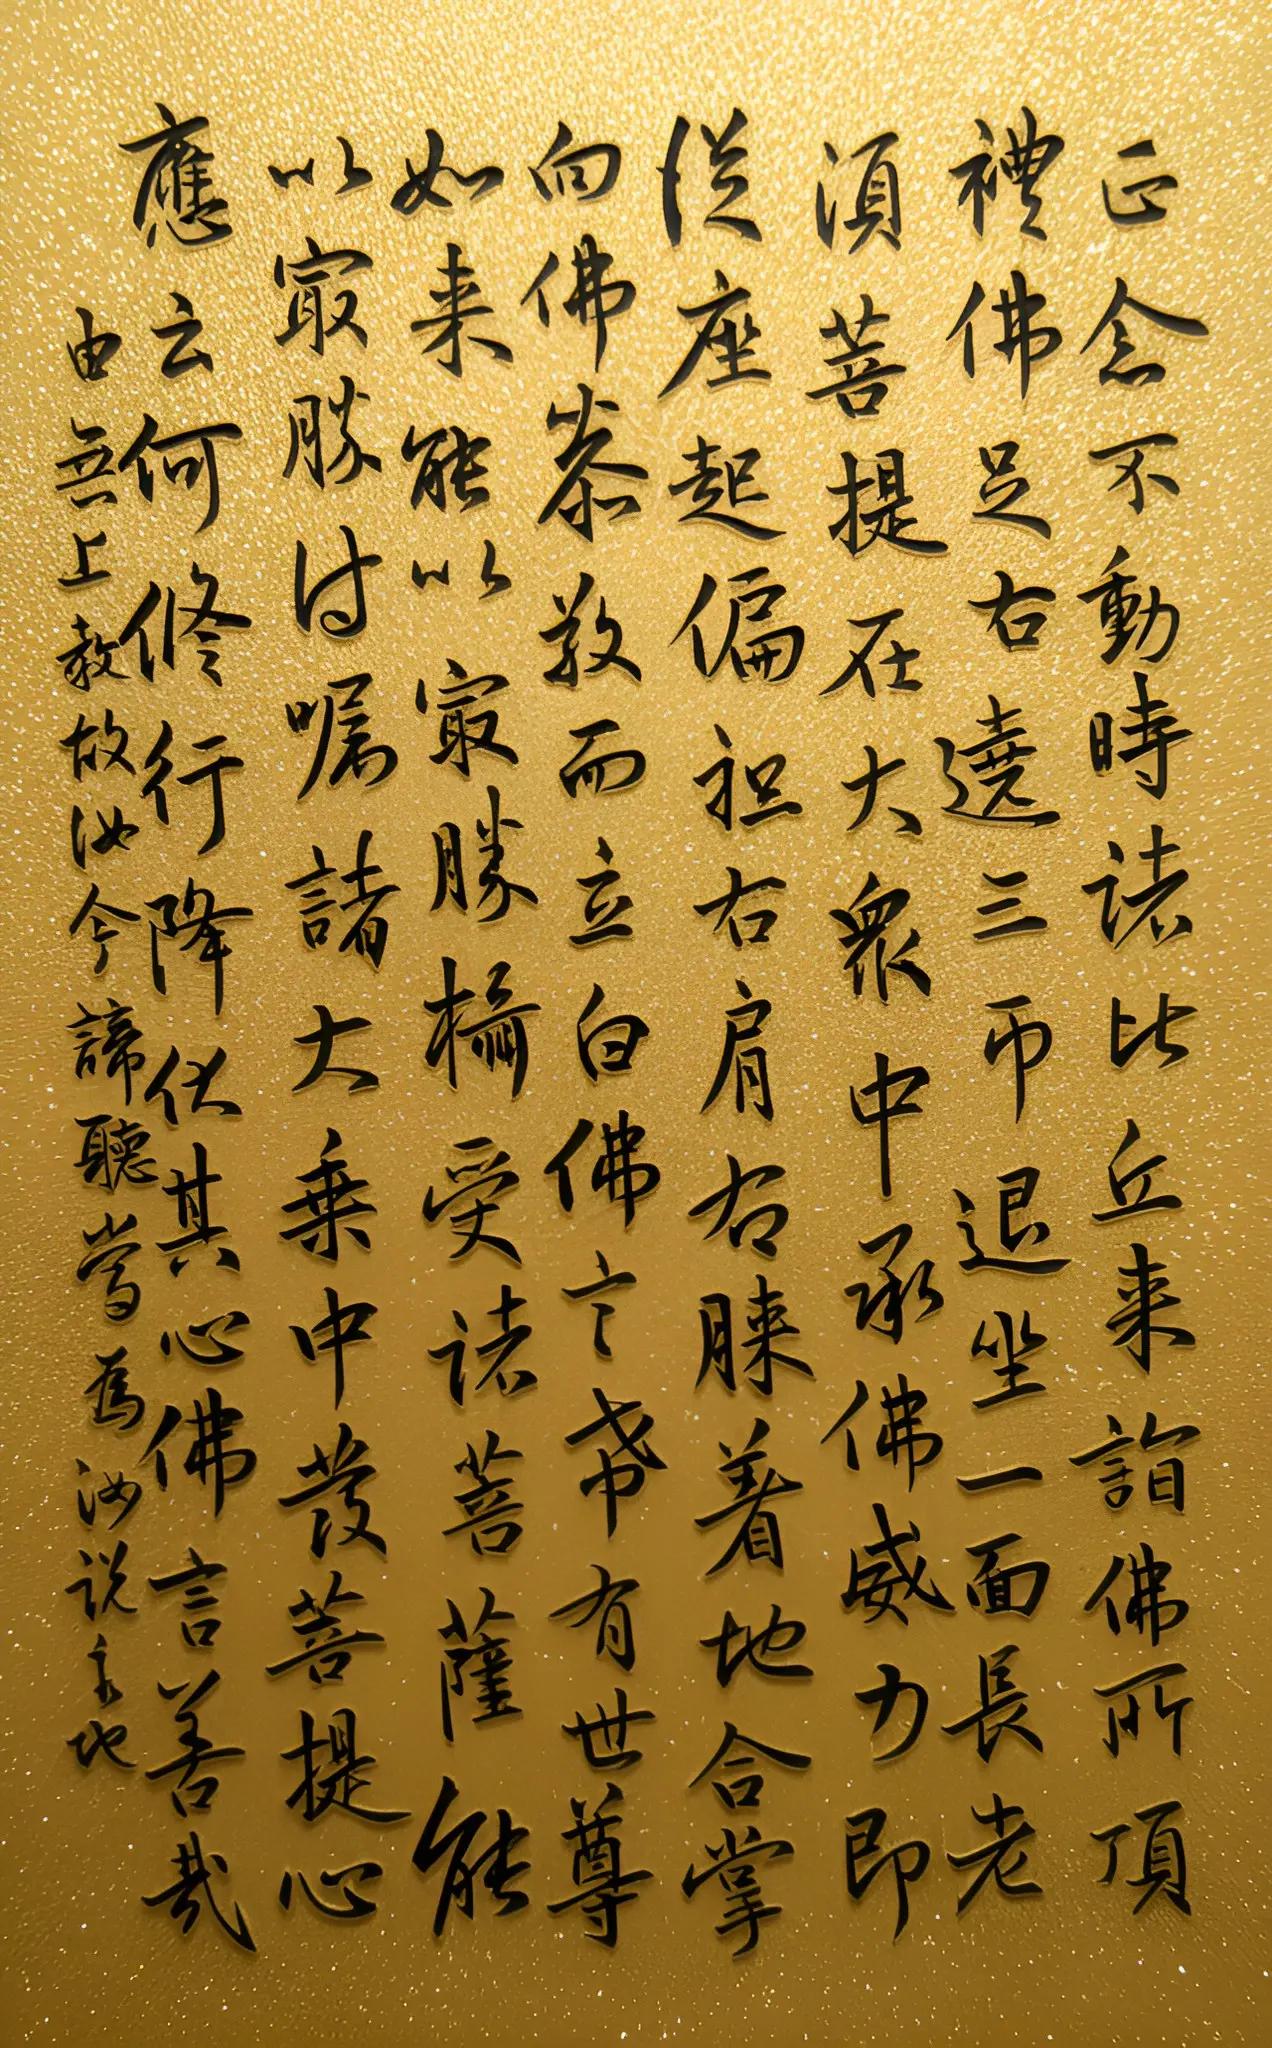 正念不動時諸比丘来詣佛所頂
禮佛足右遶三帀退坐一面長老
須菩提在大衆中承佛威力即
從座起偏袒右肩右膝着地合掌
向佛恭敬而立白佛言希有世尊
如来能以最勝攝受諸菩薩能
以最勝付嘱諸大乗中發菩提心
應云何修行降伏其心佛言善哉
由無上教故汝今諦聽當為汝説 地